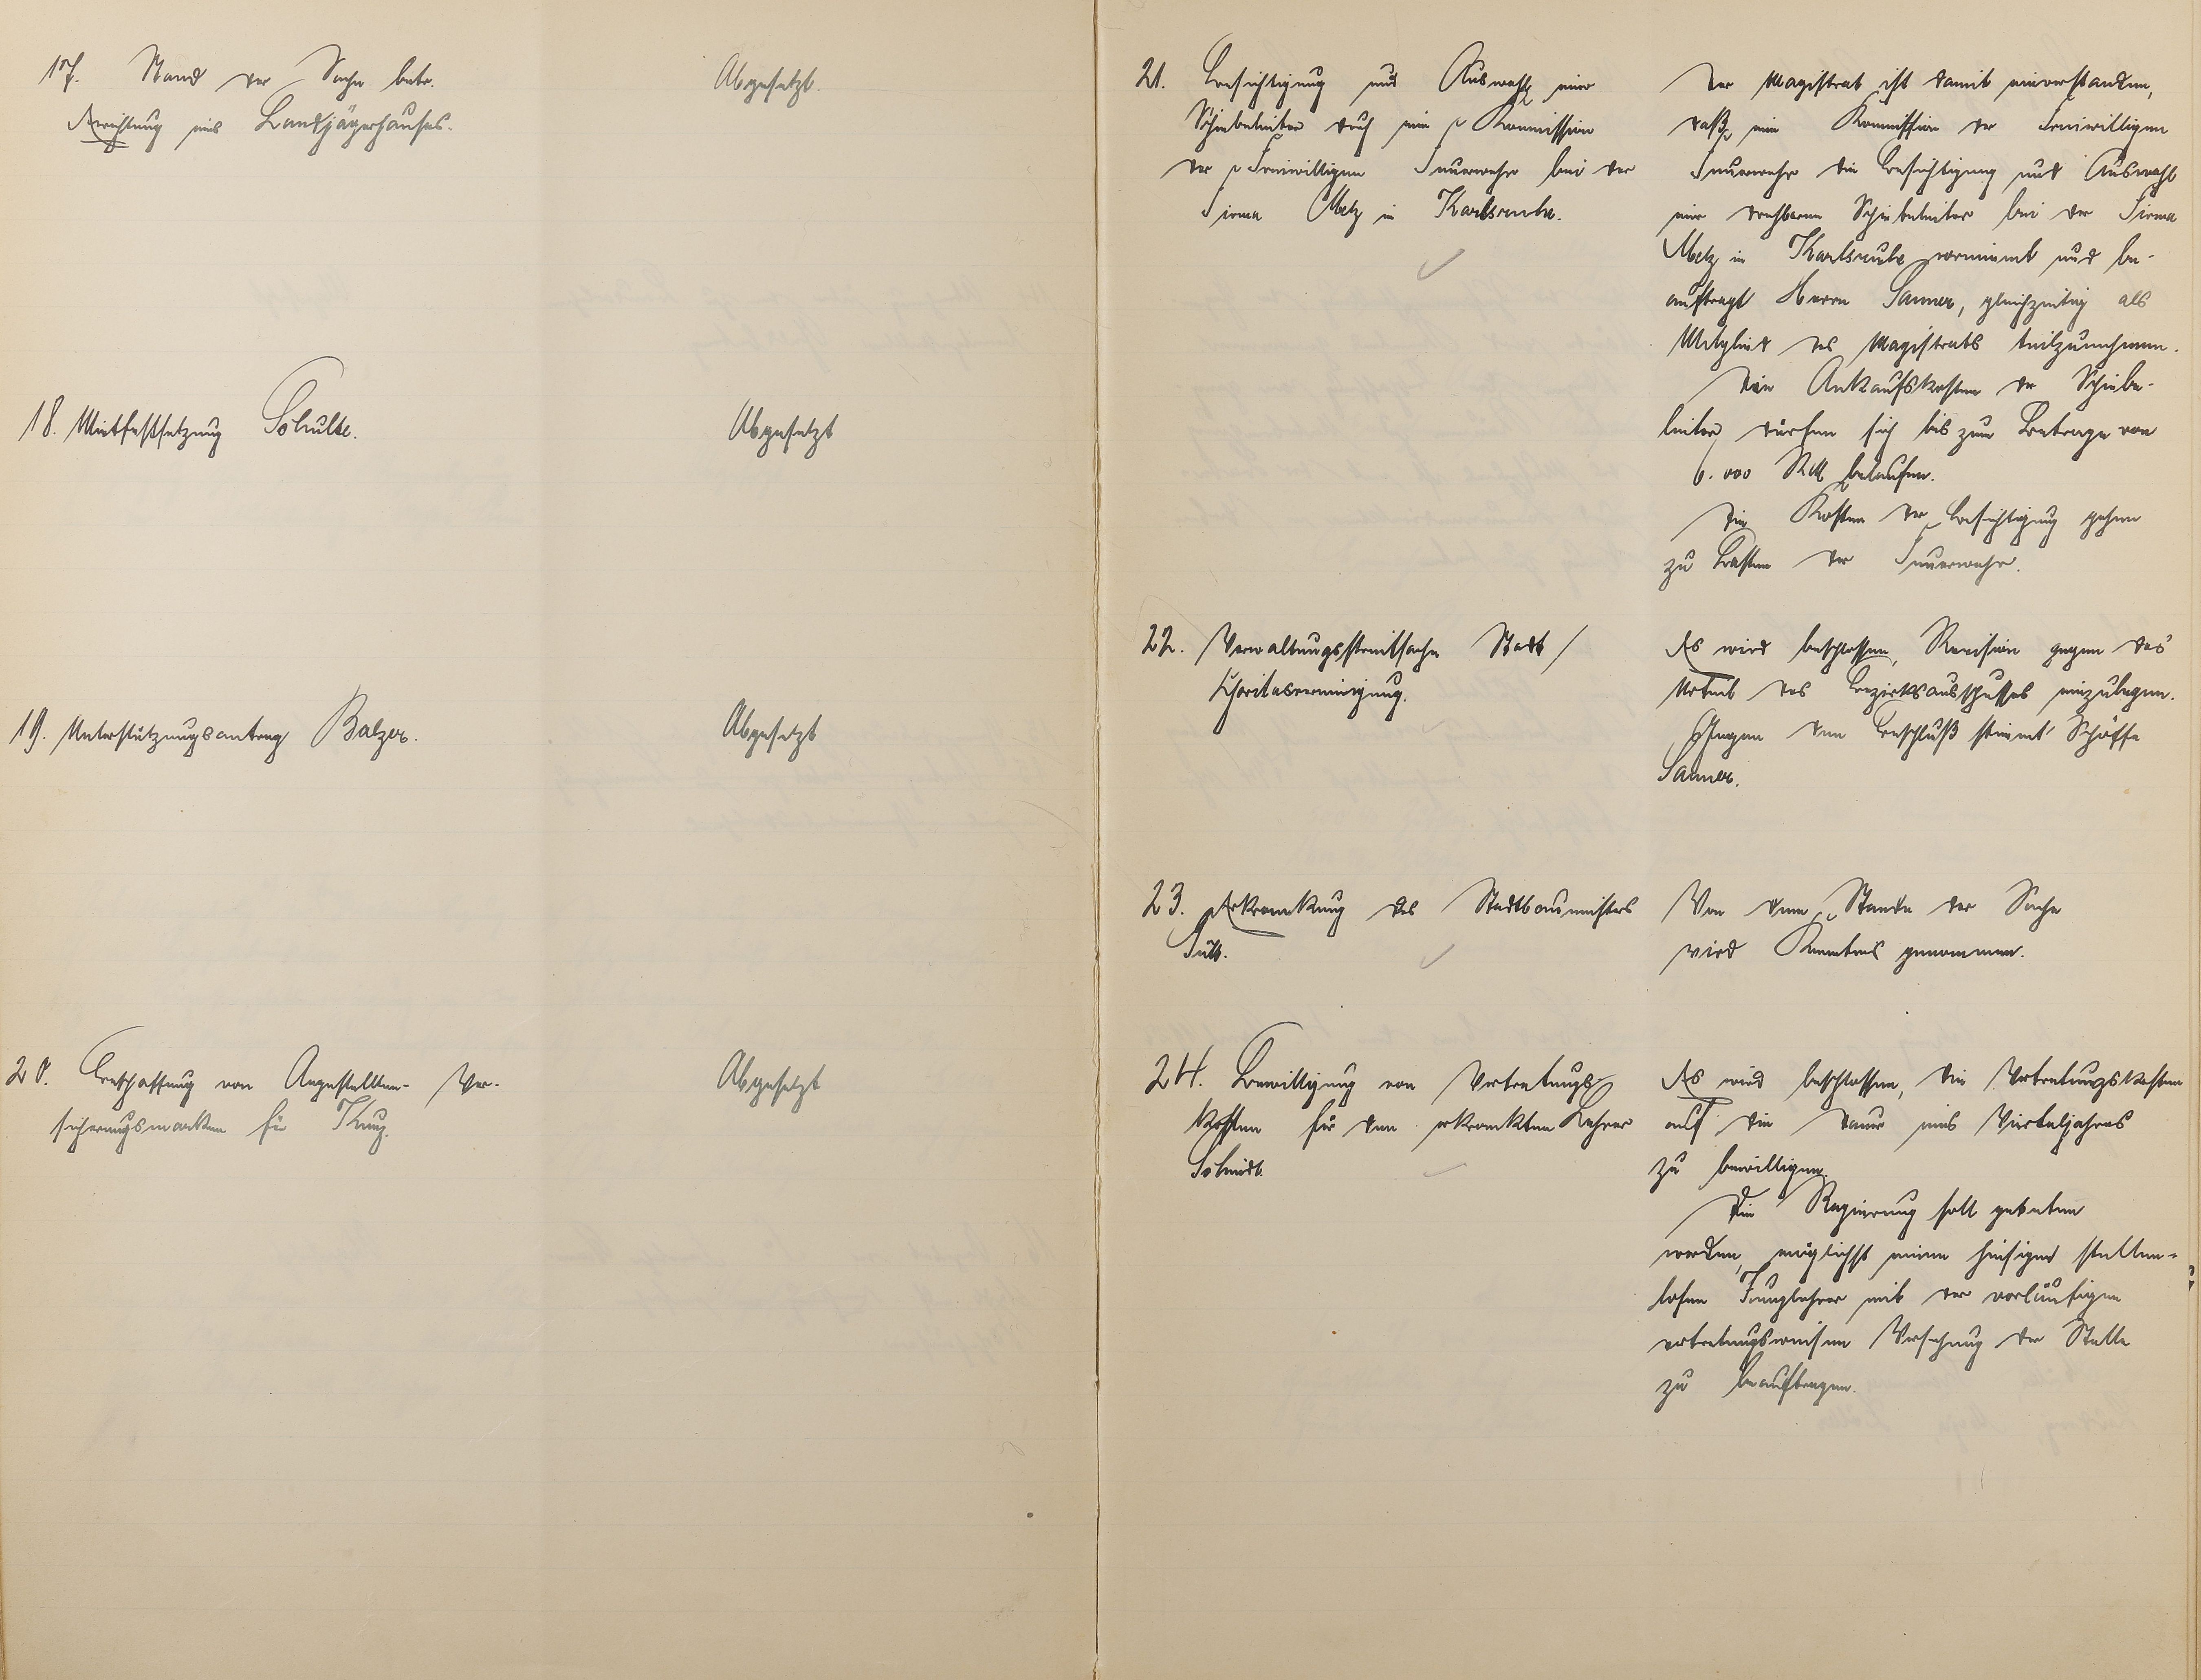 17. Stand der Sache betr.
Errichtung eines Landjägerhauses.
Abgesetzt.
18. Mietfestsetzung Schulte.
Abgesetzt
19. Unterstützungsantrag Balzer.
Abgesetzt
20. Beschaffung von Angestellten-Ver-
sicherungsmarken für Kunz.
Abgesetzt
21. Besichtigung und Auswahl einer
Schiebeleiter durch eine Kommission
der Freiwilligen Feuerwehr bei der
Firma Metz in Karlsruhe.
Der Magistrat ist damit einverstanden,
daß eine Kommission der Freiwilligen
Feuerwehr die Besichtigung und Auswahl
einer drehbaren Schiebeleiter bei der Firma
Metz in Karlsruhe vornimmt und be-
auftragt Herrn Sauer, gleichzeitig als
Mitglied des Magistrats teilzunehmen.
Die Ankaufskosten der Schiebe-
leiter dürfen sich bis zum Betrage von
6.000 RM belaufen.
Die Kosten der Besichtigung gehen
zu Lasten der Feuerwehr.
22. Verwaltungsstreitsache Stadt /
Charitasvereinigung.
Es wird beschlossen, Revision gegen das
Urteil des Bezirksausschusses einzulegen.
Gegen den Beschluß stimmt Schöffe
Sauer.
23. Erkrankung des Stadtbaumeisters
Von dem Stande der Sache
wird Kenntnis genommen.
24. Bewilligung von Vertretungs-
kosten für den erkrankten Lehrer
Schmidt.
Es wird beschlossen, die Vertretungskosten
auf die Dauer eines Vierteljahres
zu bewilligen.
Die Regierung soll gebeten
werden, möglichst einen hiesigen stellen-
losen Junglehrer mit der vorläufigen
vertretungsweisen Versehung der Stelle
zu beauftragen.